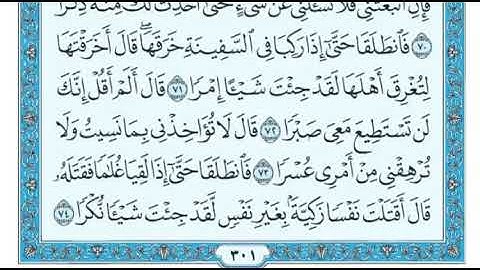 قَالَ فَإِنِ ٱتَّبَعْتَنِى فَلَا تَسْـَٔلْنِى عَن شَىْءٍ حَتَّىٰٓ أُحْدِثَ لَكَ مِنْهُ ذِكْرًا
٧٠ فَٱنطَلَقَا حَتَّىٰٓ إِذَا رَكِبَا فِى ٱلسَّفِينَةِ خَرَقَهَا ۖ قَالَ أَخَرَقْتَهَا
لِتُغْرِقَ أَهْلَهَا لَقَدْ جِئْتَ شَيْـًٔا إِمْرًا ٧١ قَالَ أَلَمْ أَقُلْ إِنَّكَ
لَن تَسْتَطِيعَ مَعِىَ صَبْرًا ٧٢ قَالَ لَا تُؤَاخِذْنِى بِمَا نَسِيتُ وَلَا
تُرْهِقْنِى مِنْ أَمْرِى عُسْرًا ٧٣ فَٱنطَلَقَا حَتَّىٰٓ إِذَا لَقِيَا غُلَـٰمًا فَقَتَلَهُۥ
قَالَ أَقَتَلْتَ نَفْسًا زَكِيَّةًۢ بِغَيْرِ نَفْسٍ لَّقَدْ جِئْتَ شَيْـًٔا نُّكْرًا ٧٤
٣٠١